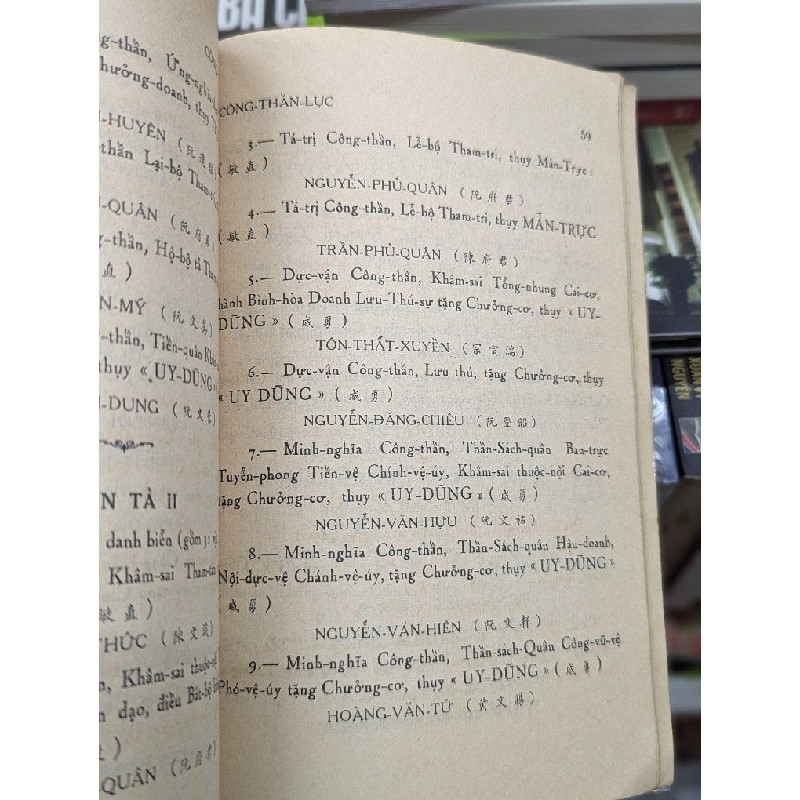 BA C
-HUYÊN (阮
-thần Lại-bộ Tham-
-QUÂN (阮府
-thần, Hộ-bộ tả Tham
直)
N-MỸ (阮文
-thần, Tiền-quân Khâm
thụy « UY-DŨNG
-DUNG (阮文
N TẢ II
danh biển (gồm 31
Khâm-sai Tham-tri
敏直)
THỨC (陳文
Khâm-sai thuộc-
dạo, điều Bát-bộ
-QUÂN (阮府君)
CÔNG-THẦN-LỤC
59
3.— Tá-trị Công-thần, Lễ-bộ Tham-tri, thụy Mẫn-Trực:
(敏直)
NGUYỄN-PHỦ-QUÂN (阮府君)
4.— Tá-trị Công-thần, Lễ-bộ Tham-tri, thụy MẪN-TRỰC
(敏直)
TRẦN-PHỦ-QUÂN (陳府君)
5.— Dực-vận Công-thần, Khâm-sai Tổng-nhung Cai-cơ,
hành Bình-hòa Doanh Lưu-Thủ-sự tặng Chưởng-cơ, thụy « UY-
DŨNG » (威勇)
TÔN-THẤT-XUYỀN (宗室
6.— Dực-vận Công-thần, Lưu thủ, tặng Chưởng-cơ, thụy
« UY DŨNG » (威勇)
NGUYỄN-ĐĂNG-CHIÊU (阮登昭)
7.— Minh-nghĩa Công-thần, Thần-Sách-quân Ban-trực
Tuyển-phong Tiền-vệ Chính-vệ-úy, Khâm-sai thuộc-nội Cai-cơ,
tặng Chưởng-cơ, thụy « UY-DŨNG » (威勇)
NGUYỄN-VĂN-HỰU (阮文祐)
8.— Minh-nghĩa Công-thần, Thần-Sách-quân Hậu-doanh,
Nội-dực-vệ Chánh-vệ-úy, tặng Chưởng-cơ, thụy « UY-DŨNG »
(威勇)
NGUYỄN-VĂN-HIÊN (阮文軒)
9.— Minh-nghĩa Công-thần, Thần-sách-Quân Công-vũ-vệ
Phó-vệ-úy tặng Chưởng-cơ, thụy « UY-DŨNG » (威勇)
HOÀNG-VĂN-TỨ (黄文賜)
XUÂN VỸ
NGUYỄN